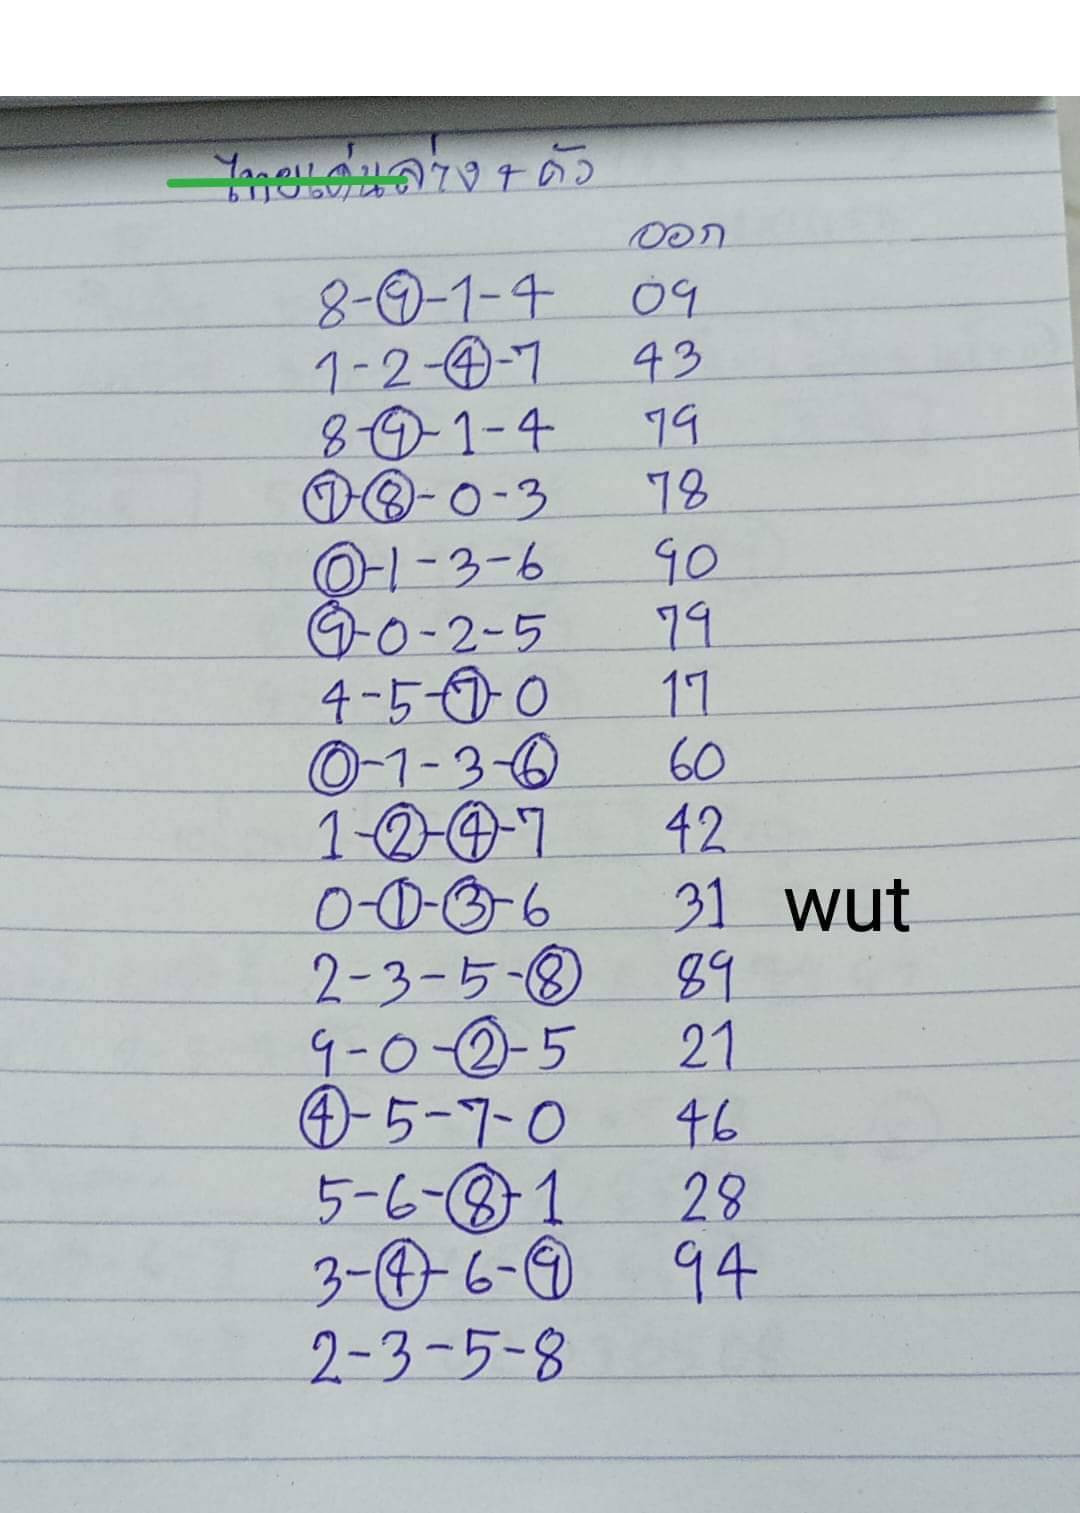 ไทยเด่นล่าง 4 ตัว
ออก
8-9-1-4 09
1-2-4-7 43
8-9-1-4 79
7-8-0-3 78
0-1-3-6 90
9-0-2-5 79
4-5-7-0 17
0-1-3-6 60
1-2-4-7 42
0-1-3-6 31 wut
2-3-5-8 89
9-0-2-5 21
4-5-7-0 46
5-6-8-1 28
3-4-6-9 94
2-3-5-8